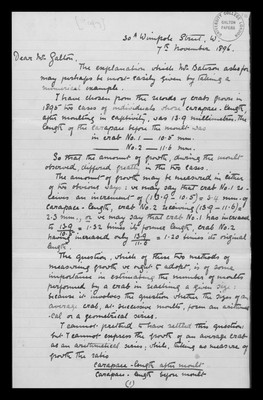 30A Wimpole Street, W.
7th November 1896.
Dear Mr Galton,
The explanation which Mr Bateson asks for
may perhaps be most easily given by taking a
numerical example.
I have chosen from the records of crabs grown in
1895 two cases of individuals whose carapace-length,
after moulting in captivity, was 13.9 millimetres. The
length of the carapace before the moult was
in crab No. 1 — 10.5 mm.
— No. 2 — 11.6 mm.
So that the amount of growth, during the moult
observed, differed greatly in the two cases.
The amount of growth may be measured in either
of two obvious ways: we may say that crab No. 1 re-
ceives an increment of (13.9 – 10.5) = 3.4 mm. of
carapace-length, crab No. 2 receiving (13.9 – 11.6) =
2.3 mm., or we may say that crab No. 1 has increased
to 13.9/10.5 = 1.32 times its former length, crab No. 2
having increased only 13.9/11.6 = 1.20 times its original
length.
The question, which of these two methods of
measuring growth we ought to adopt, is of some
importance in estimating the number of moults
performed by a crab in reaching a given size:
because it involves the question whether the sizes of an
average crab, at successive moults, form an arithmeti-
cal or a geometrical series.
I cannot pretend to have settled this question:
but I cannot express the growth of an average crab
as an arithmetical series, while, taking as measure of
growth the ratio
carapace-length after moult
carapace-length before moult
(1)
GALTON
PAPERS